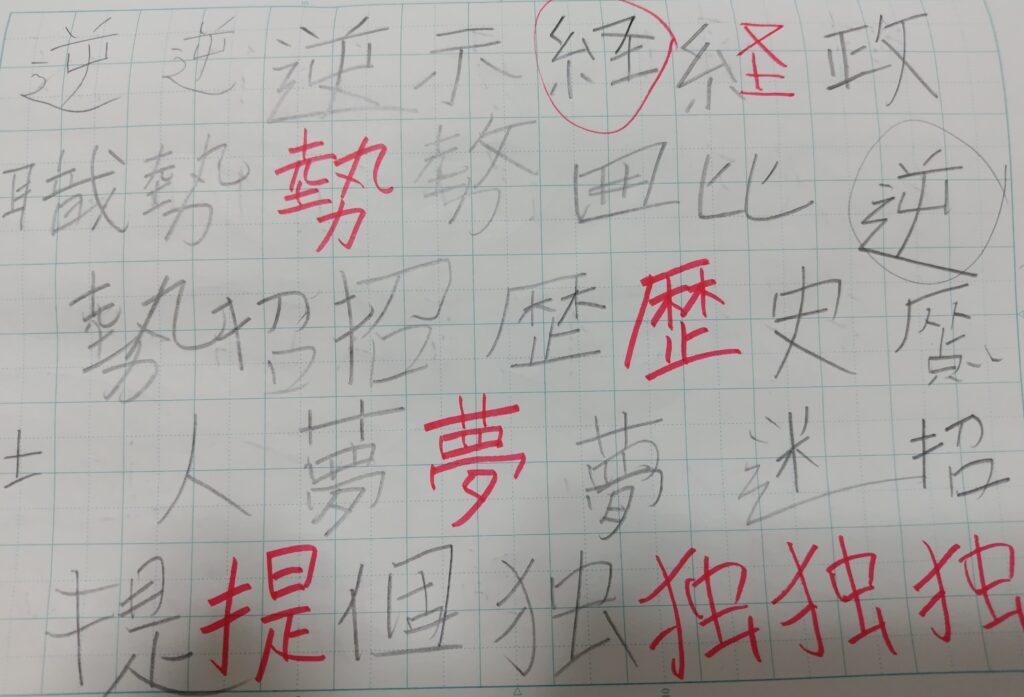 逆逆逆示経経政
職勢勢勢比逆
勢招招歴歴史
士人夢夢夢迷招
提提個独独独独